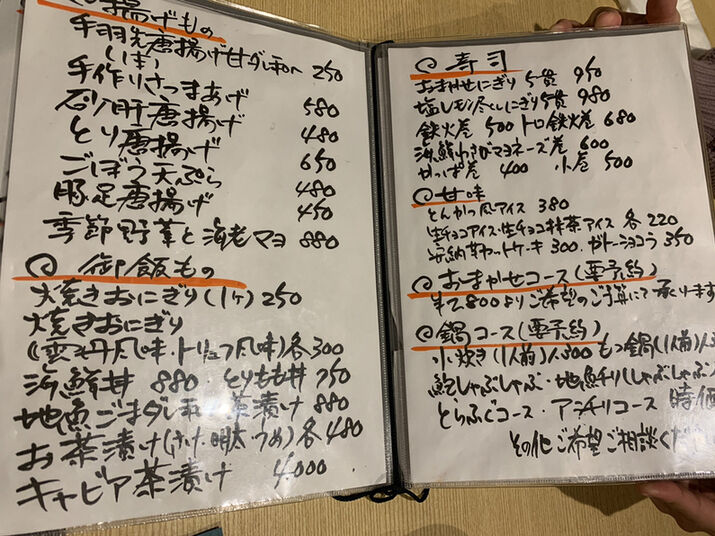 揚げもの
手羽先唐揚げ甘ダレ和へ 250
(1本)
手作りさつまあげ 580
砂肝唐揚げ 480
とり唐揚げ 650
ごぼう天ぷら 480
豚足唐揚げ 450
季節野菜と海老マヨ 880
御飯もの
焼きおにぎり(1ヶ) 250
焼きおにぎり
(雲丹風味・トリュフ風味)各300
海鮮丼 880 とりもも丼 750
地魚ごまダレ和へ茶漬け 880
お茶漬け(さけ、明太、うめ)各480
キャビア茶漬け 4,000
寿司
おまかせにぎり 5貫 950
塩レモン尽くしにぎり5貫 980
鉄火巻 500 トロ鉄火巻 680
海鮮わさびマヨネーズ巻 600
かっぱ巻 400 小巻 500
甘味
とんかつ風アイス 380
生チョコアイス・生チョコ抹茶アイス 各220
安納芋ホットケーキ 300. ガトーショコラ 350
おまかせコース(要予約)
¥2,800よりご希望のご予算にて承ります
鍋コース(要予約)
水炊き(1人前)1,300 もつ鍋(1人前)1,
しゃぶしゃぶ・地魚チリしゃぶしゃぶ
とらふぐコース・アラチリコース 時価
その他ご希望ご相談くだ